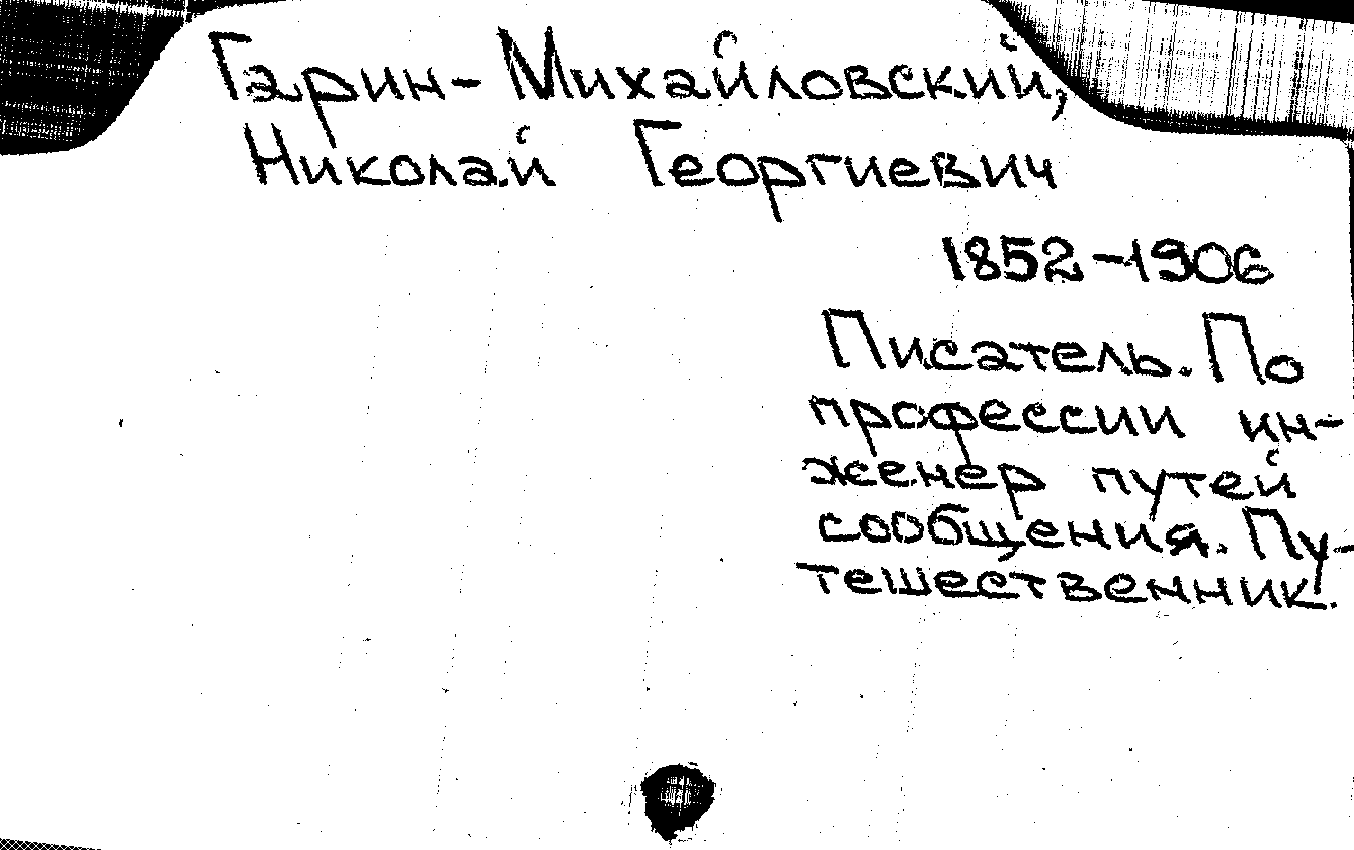 Гарин-Михайловский,
Николай Георгиевич
1852-1906
Писатель. По
профессии ин-
женер путей
сообщения. Пу-
тешественник.